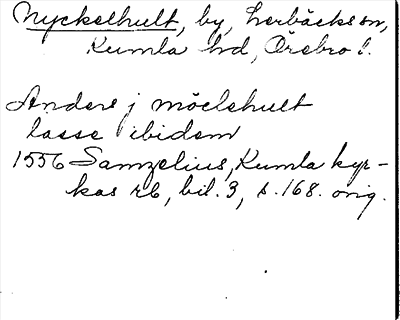 Nyckelhult, by, Lerbäcks sn,
Kumla hd, Örebro l.
Anders j möclehult
lasse ibidem
1556 Samzelius, Kumla kyr-
kas rb, bil. 3, s. 168. orig.